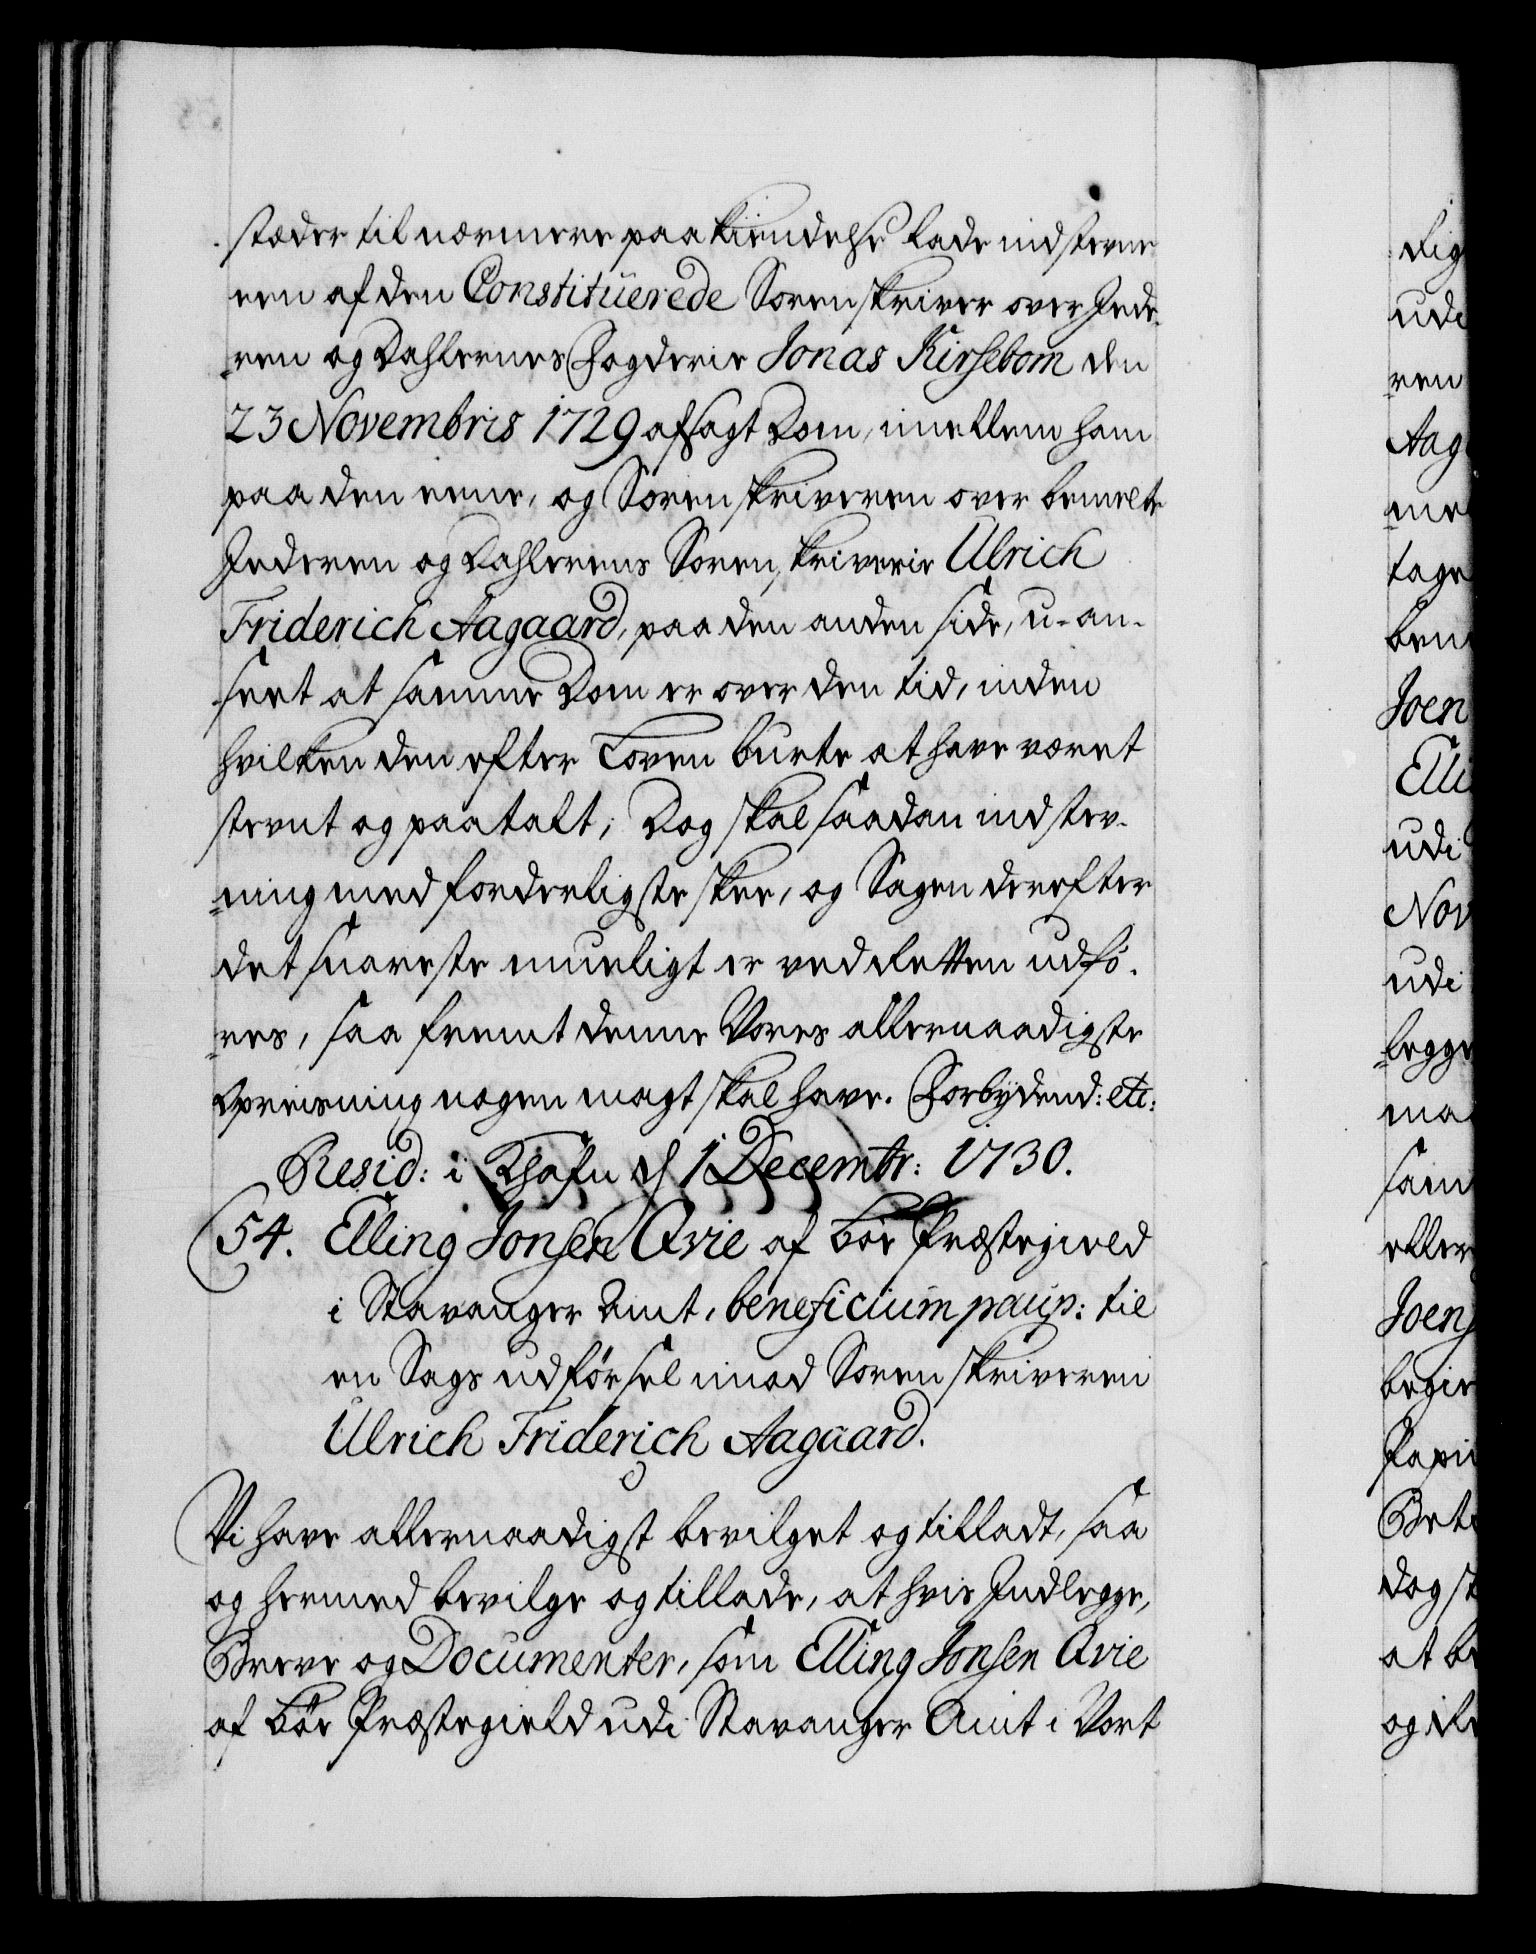 stæder til nærmere paakiendelse lade indstevne
een af den Constituerede Sorenskriver over Jede-
ren og Dahlernes Fogderie Jonas Kirsebom den
23 Novembris 1729 afsagt Dom, imellem ham
paa den eene, og Sorenskriveren over bemelte
Jederen og Dahlerens Sorenskriverie Ulrich
Friderich Aagaard, paa den anden side, u-an-
seet at samme Dom er over den tid, inden
hvilken den efter Loven burte at have været
stevnt og paatalt; Dog skal saadan indstev-
ning med forderligste skee, og Sagen derefter
det snareste mueligt er ved Retten udfø-
res, saa fremt denne Vores allernaadigste
Opreisning nogen magt skal have. Forbydend: etc:
Resid: i Khafn d 1 Decembr: 1730.
54. Elling Jonsen Qvie af Bøe Præstegield
i Stavanger Amt, beneficium paup: til
en Sags udførsel imod Sorenskriveren
Ulrich Friderich Aagaard.
Vi have allernaadigst bevilget og tilladt, saa
og hermed bevilge og tillade, at hvis Indlegge,
Breve og Documenter, som Elling Jonsen Qvie
af Bøe Præstegield udi Stavanger Amt i Vort